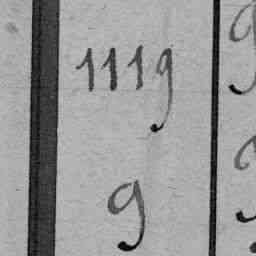 1119
9